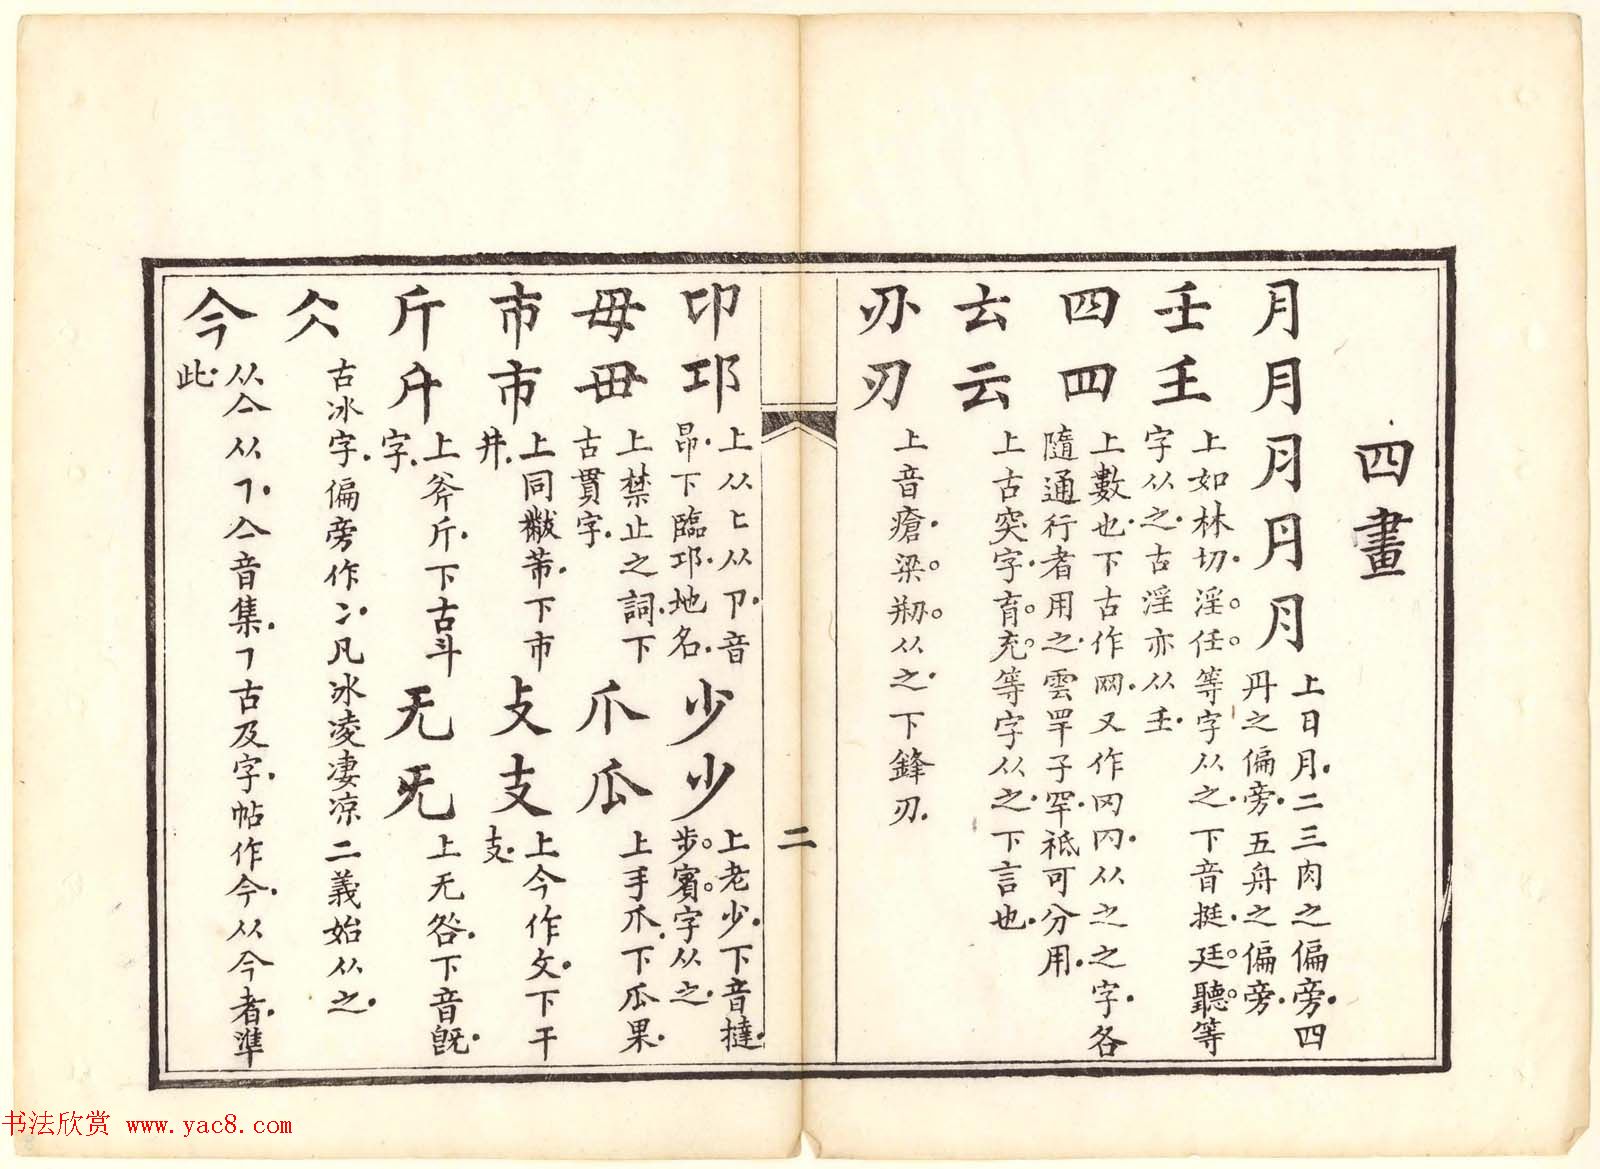 四畫
月月月丹月
上日月二三肉之偏旁四
丹之偏旁五舟之偏旁
壬𡈼
上如林切淫任等字从之下音挺廷聽等
字从之古淫亦从𡈼
四四
上數也下古作网又作冈冈从之之字各
隨通行者用之雲罕子罕祗可分用
𠫓云
上古突字育充等字从之下言也
刅刃
上音瘡梁剏从之下鋒刃
二
卬邛
上从匕从卪音
昂下臨邛地名
少少
上老少下音撻
步賓字从之
毋毌
上禁止之詞下
古貫字
爪瓜
上手爪下瓜果
巿市
上同黻芾下市
井
攴支
上今作攵下干
支
斤斗
上斧斤下古斗
字
无旡
上无咎下音旣
仌
古冰字偏旁作冫凡冰凌凄凉二義始从之
今
从亼从㇕亼音集㇕古及字帖作今从今者準
此
书法欣赏 www.yac8.com